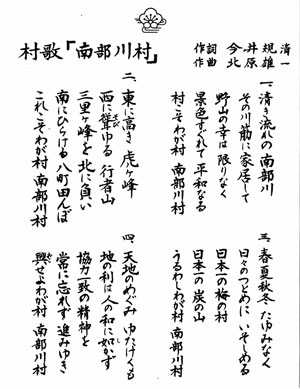 村歌「南部川村」
作詞 今井規清
作曲 北原雄一
一、清き流れの南部川
その川筋に家居して
野山の幸は限りなく
景色すぐれて平和なる
村こそわが村 南部川村
二、東に高き虎ヶ峰
西に聳ゆる行者山
三里ヶ峰を北に負い
南にひらける八町田んぼ
これこそわが村 南部川村
三、春夏秋冬たゆみなく
日々のつとめにいそしめる
日本一の梅の村
日本一の炭の山
うるわしわが村 南部川村
四、天地のめぐみゆたけくも
地の利は人の和に如かず
協力一致の精神を
常に忘れず進みゆき
興せよわが村 南部川村